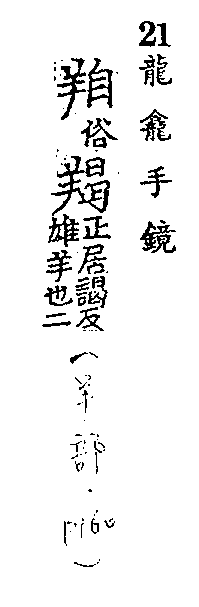 21 龍龕手鏡
⿰羊自俗羯正居謁反
雄羊也二
(羊部·P160)